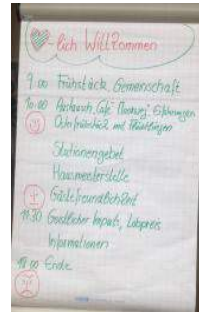 -lich Willkommen
9.00 Frühstück, Gemeinschaft
10.00 Austausch, Café Planung, Erfahrungen
Osterfrühstück mit Flüchtlingen
Stationengebet
Hausmeisterstelle
Gästefreundlichkeit
11.30 Geistlicher Impuls, Lobpreis
Informationen
Ende